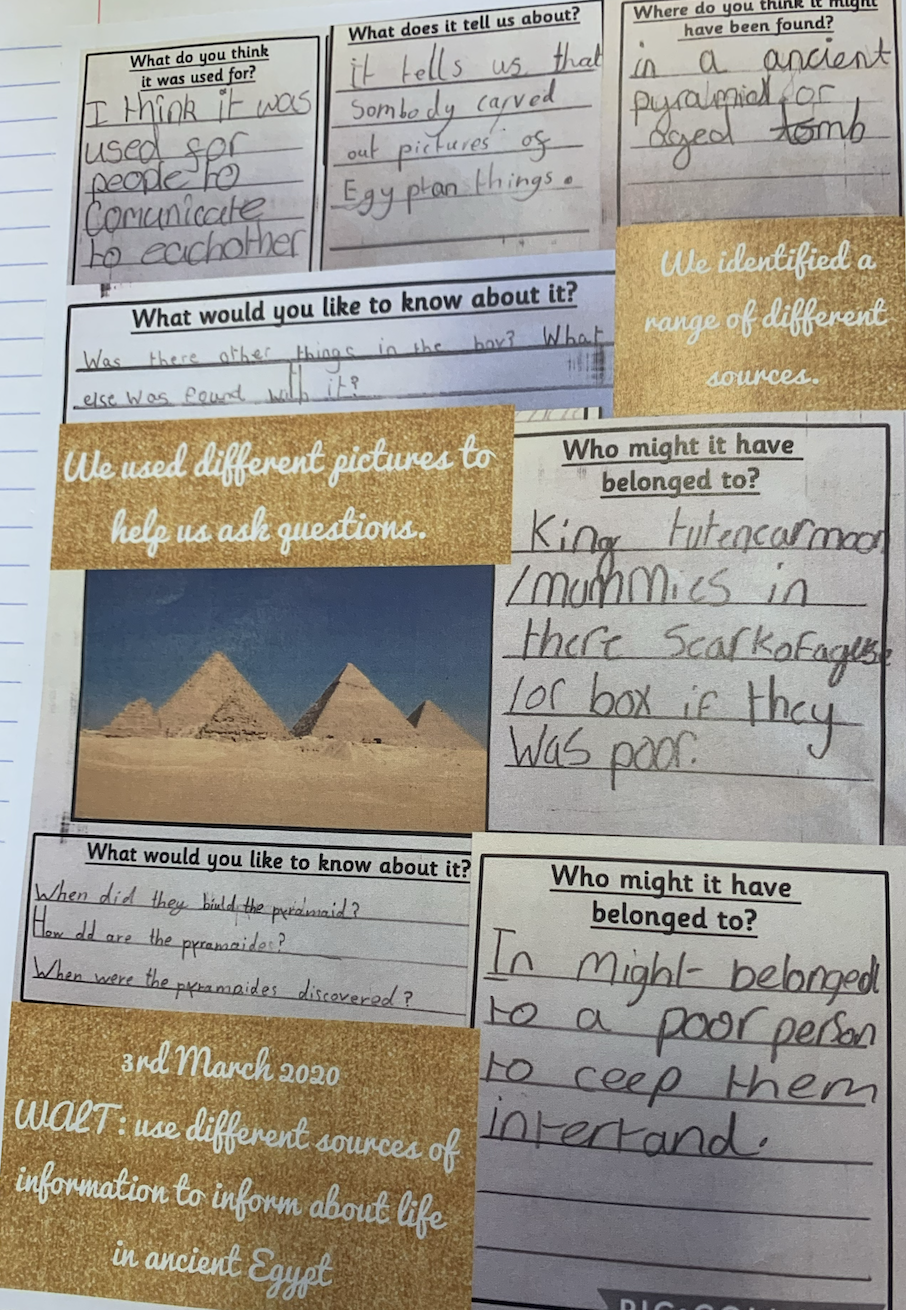 What do you think
it was used for?
I think it was
used for
people to
Comunicate
to eachother
What does it tell us about?
it tells us that
Sombody carved
out pictures of
Egyptan things.
Where do you think it might
have been found?
in a ancient
pyramid or
aged tomb
We identified a
range of different
sources.
What would you like to know about it?
Was there other things in the box? What
else was found with it?
We used different pictures to
help us ask questions.
Who might it have
belonged to?
King tutencarmoon
/mummies in
there Scarkofaguse
/or box if they
was poor.
What would you like to know about it?
When did they biuld the pyramaid?
How old are the pyramaides?
When were the pyramaides discovered?
Who might it have
belonged to?
In might belonged
to a poor person
to ceep them
intertand.
3rd March 2020
WALT: use different sources of
information to inform about life
in ancient Egypt